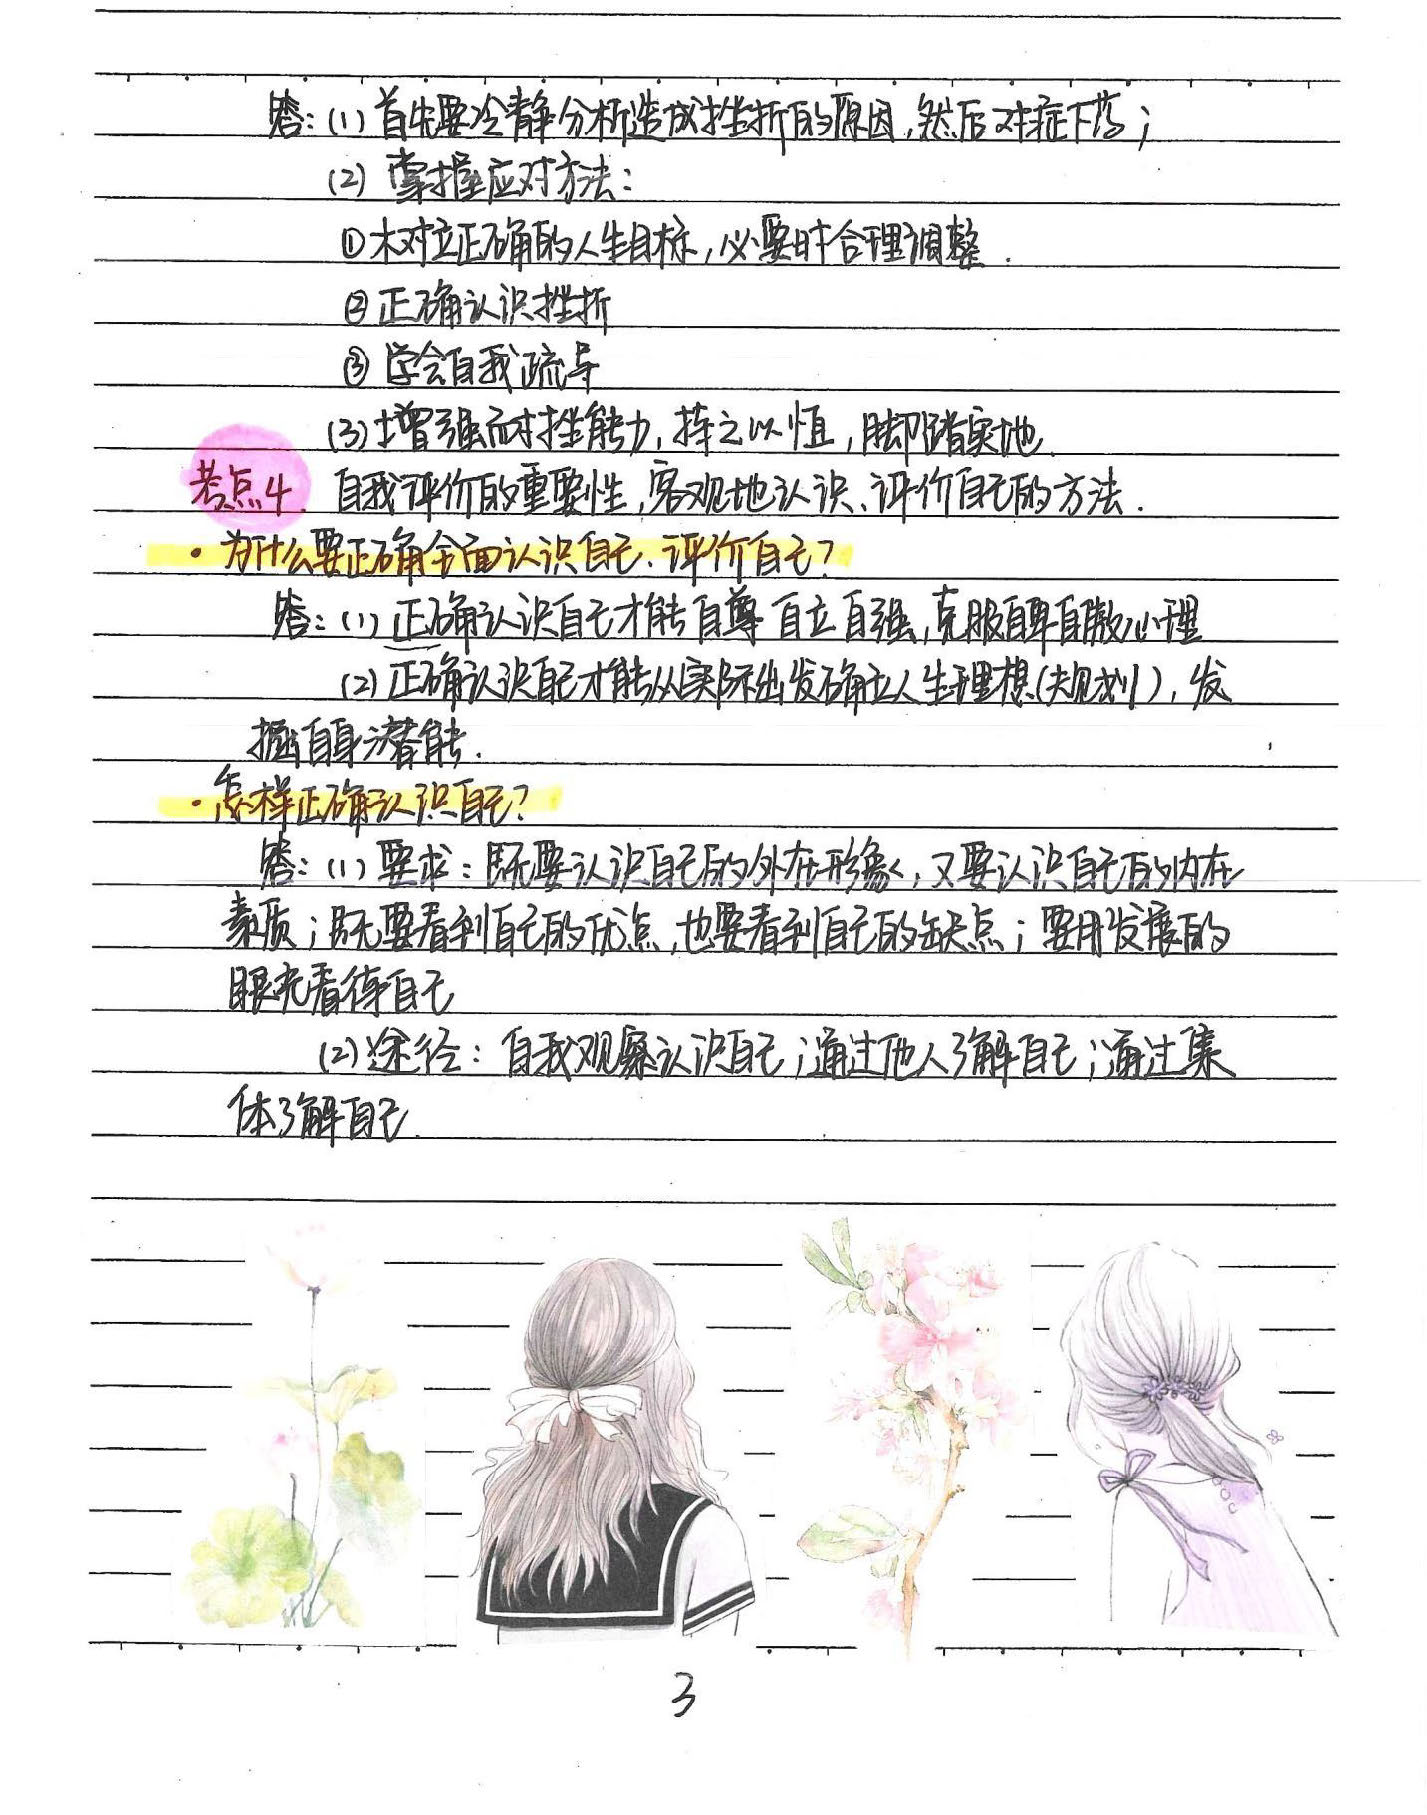 答：(1) 首先要冷静分析造成挫折的原因，然后对症下药；
(2) 掌握应对方法：
① 树立正确的人生目标，必要时合理调整.
② 正确认识挫折
③ 学会自我疏导
(3) 增强耐挫能力，持之以恒，脚踏实地.
考点4. 自我评价的重要性，客观地认识、评价自己的方法.
·为什么要正确全面认识自己、评价自己？
答：(1) 正确认识自己才能自尊自立自强，克服自卑自傲心理
(2) 正确认识自己才能从实际出发确立人生理想(规划)，发
掘自身潜能.
·怎样正确认识自己？
答：(1) 要求：既要认识自己的外在形象，又要认识自己的内在
素质；既要看到自己的优点，也要看到自己的缺点；要用发展的
眼光看待自己
(2) 途径：自我观察认识自己；通过他人了解自己；通过集
体了解自己.
3